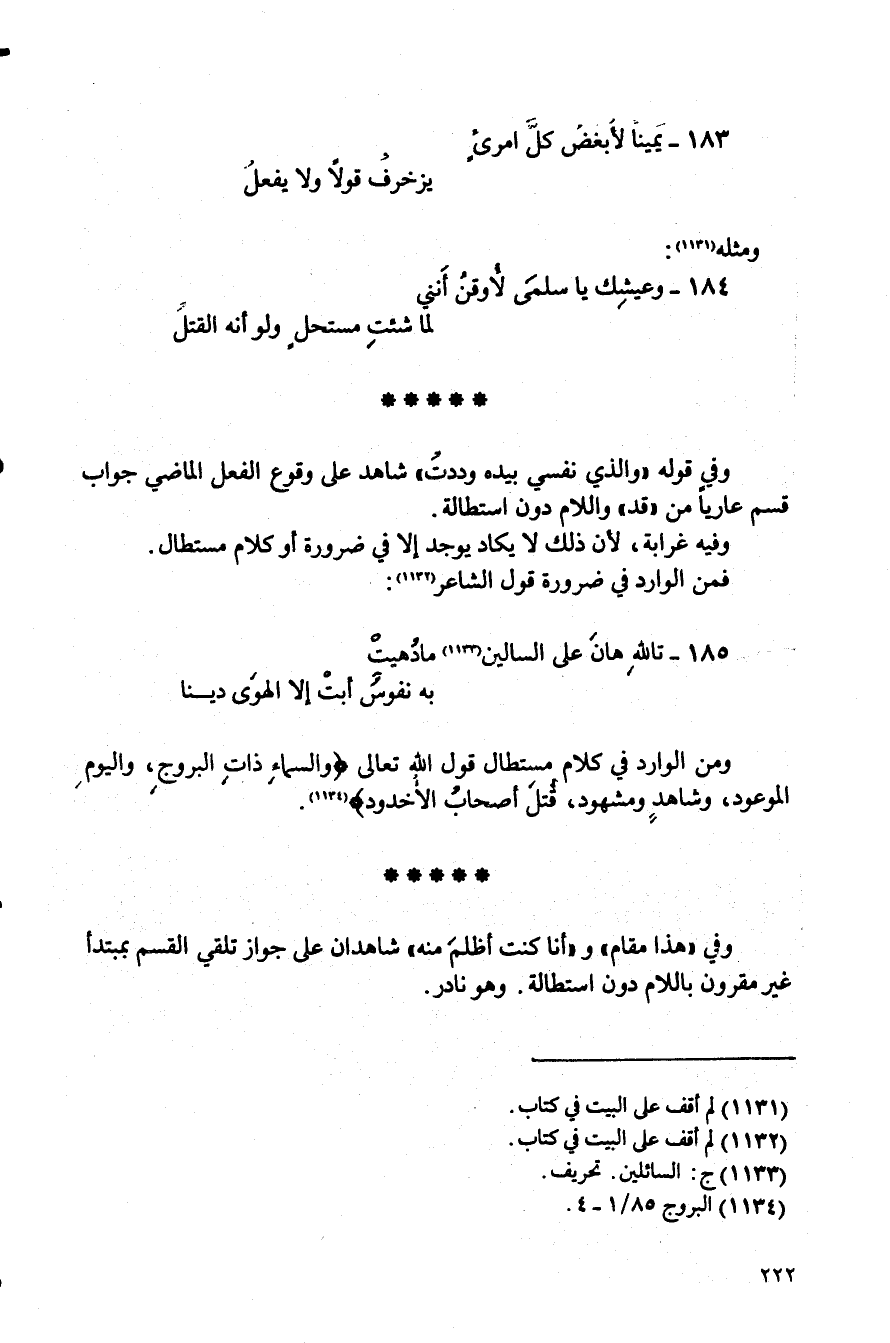 ١٨٣ - يَميناً لأَبغضُ كلَّ امرىءٍ
يزخرفُ قولاً ولا يفعلُ
ومثله(١١٣١):
١٨٤ - وعيشِك يا سلمَى لأُوقنُ أَنني
لما شئتِ مستحلٍ ولو أنه القتلُ
*****
وفي قوله «والذي نفسي بيده وددتُ» شاهد على وقوع الفعل الماضي جواب
قسم عارياً من «قد» واللام دون استطالة.
وفيه غرابة، لأن ذلك لا يكاد يوجد إلا في ضرورة أو كلام مستطال.
فمن الوارد في ضرورة قول الشاعر(١١٣٢):
١٨٥ - تاللهِ هانَ على السالين(١١٣٣) مادُهيتْ
به نفوسٌ أبتْ إلا الهوَى ديـــنا
ومن الوارد في كلام مستطال قول الله تعالى ﴿والسماءِ ذاتِ البروجِ، واليومِ
الموعود، وشاهدٍ ومشهودٍ، قُتلَ أصحابُ الأخدود﴾(١١٣٤).
*****
وفي «هذا مقام» و «أنا كنت أظلمَ منه» شاهدان على جواز تلقي القسم بمبتدأ
غير مقرون باللام دون استطالة. وهو نادر.
(١١٣١) لم أقف على البيت في كتاب.
(١١٣٢) لم أقف على البيت في كتاب.
(١١٣٣) ج: السائلين. تحريف.
(١١٣٤) البروج ٨٥/ ١ - ٤.
٢٢٢